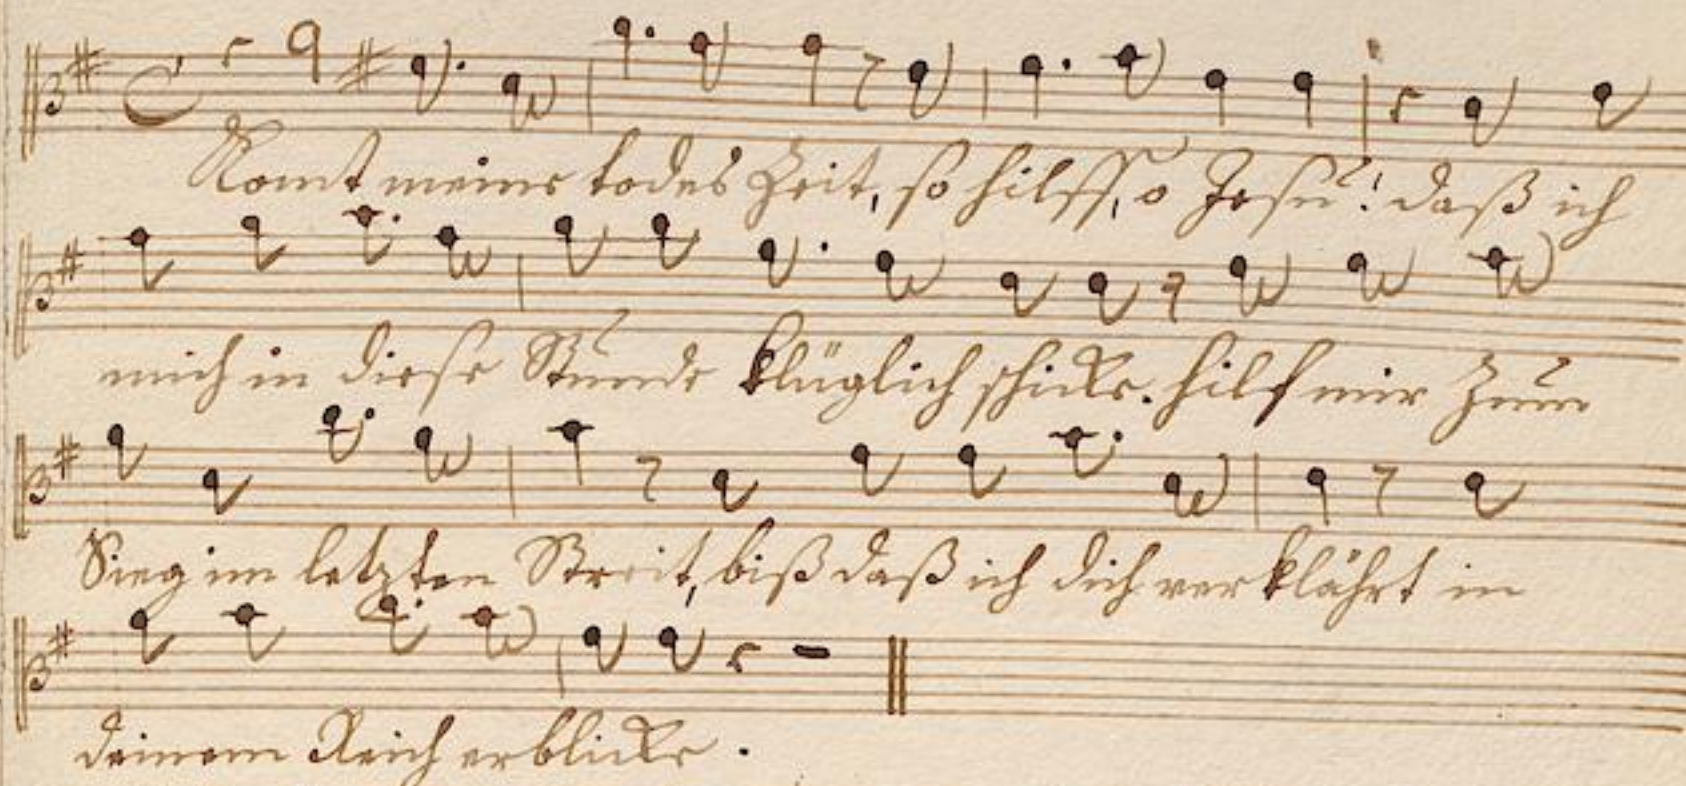 Komt meine todes Zeit, so hilff, o Jesu! daß ich
mich in dieser Stunde klüglich schicke. hilf mir zum
Sieg im letzten Streit, biß daß ich dich verklährt in
deinem Reich erblicke.